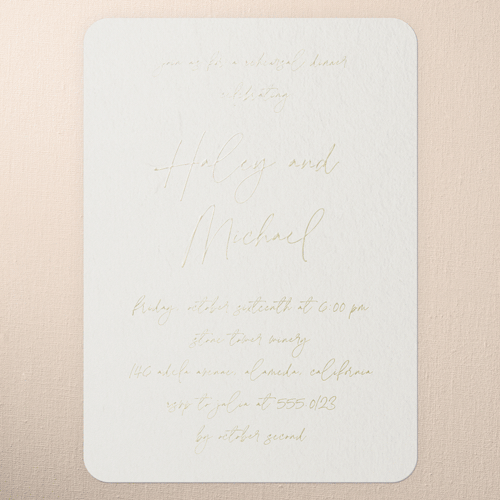 join us for a rehearsal dinner
celebrating
Hailey and
Michael
friday, october sixteenth at 6:00 pm
stone tower winery
adela avenue, alameda, california
rsvp to julia at 555.0123
by october second